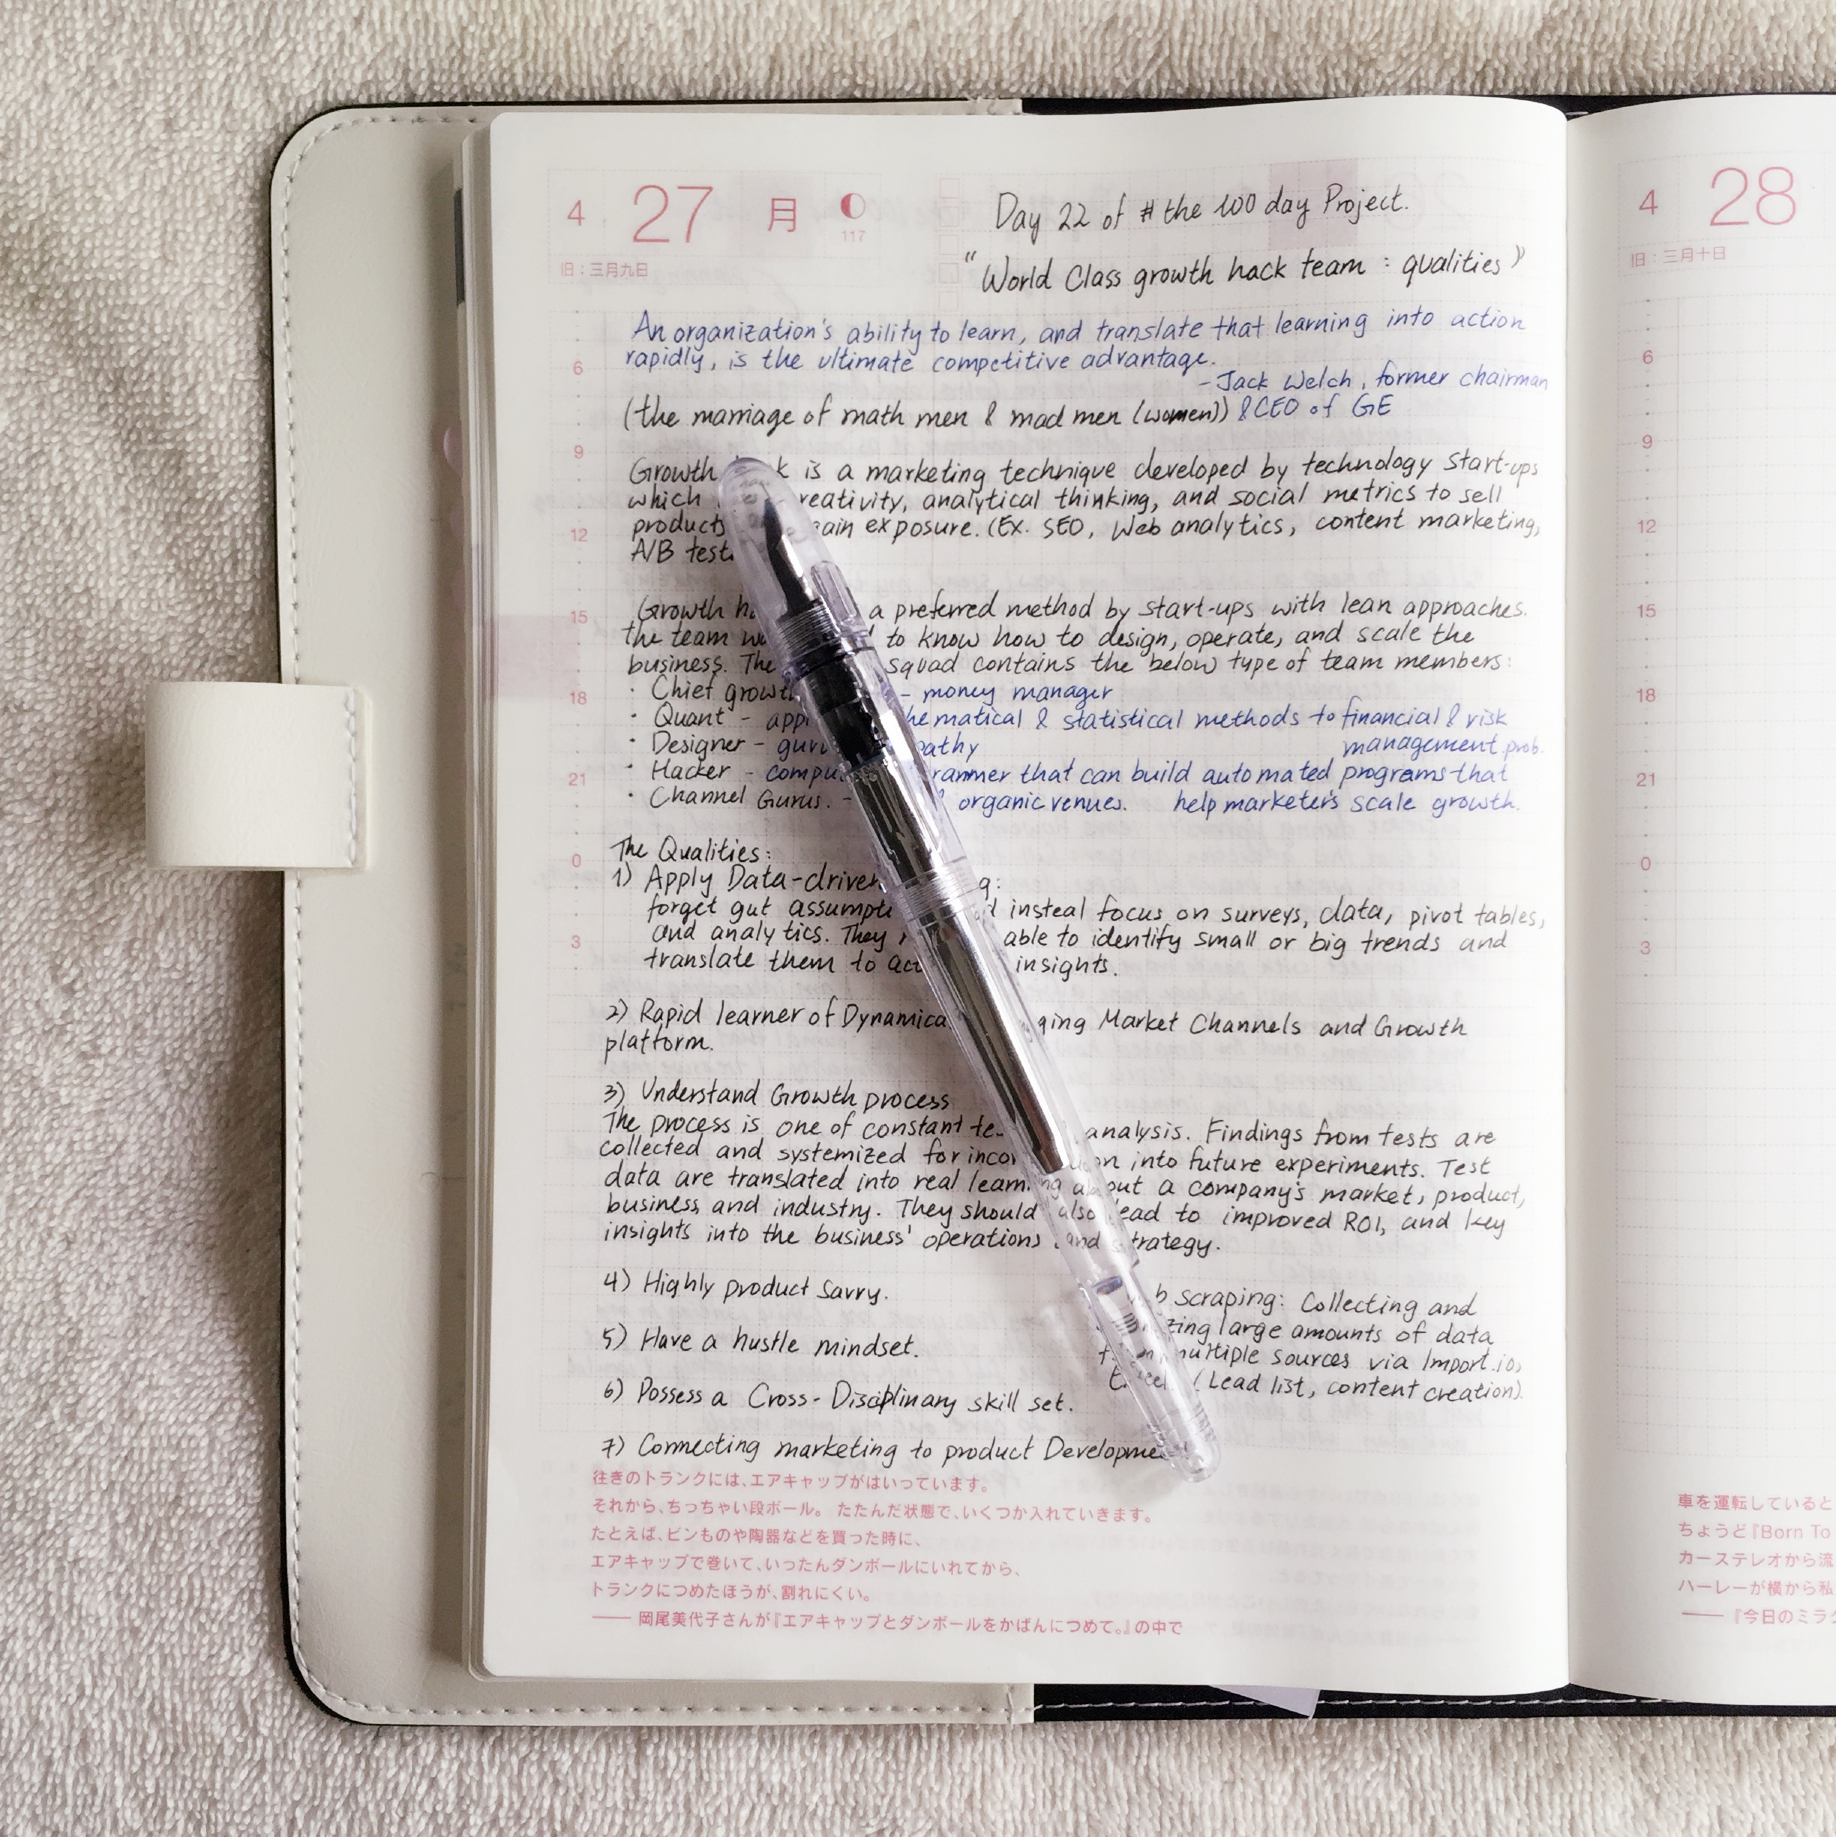 4 27 月
117
旧：三月九日
Day 22 of # the 100 day Project.
"World Class growth hack team : qualities"
An organization's ability to learn, and translate that learning into action
rapidly, is the ultimate competitive advantage.
- Jack Welch, former chairman
& CEO of GE
(the marriage of math men & mad men (women))
Growth k is a marketing technique developed by technology start-ups
which reativity, analytical thinking, and social metrics to sell
products ain exposure. (Ex. SEO, Web analytics, content marketing,
A/B test
Growth h a preferred method by start-ups with lean approaches.
the team to know how to design, operate, and scale the
business. The squad contains the below type of team members:
· Chief growt - money manager
· Quant - app hematical & statistical methods to financial & risk
management prob.
· Designer - guru pathy
· Hacker - compu rammer that can build automated programs that
help marketers scale growth.
· Channel Gurus. - organic venues.
The Qualities:
1) Apply Data-driven g:
forget gut assumpti d insteal focus on surveys, data, pivot tables,
and analytics. They able to identify small or big trends and
translate them to act insights.
2) Rapid learner of Dynamica ging Market Channels and Growth
platform.
3) Understand Growth process
The process is one of constant te analysis. Findings from tests are
collected and systemized for incor tion into future experiments. Test
data are translated into real learning about a company's market, product,
business and industry. They should also lead to improved ROI, and key
insights into the business' operations and strategy.
4) Highly product savvy.
5) Have a hustle mindset.
6) Possess a Cross-Disciplinary skill set.
7) Connecting marketing to product Development
b scraping: Collecting and
zing large amounts of data
from multiple sources via Import.io,
Excel. (Lead list, content creation).
6
9
12
15
18
21
0
3
往きのトランクには、エアキャップがはいっています。
それから、ちっちゃい段ボール。たたんだ状態で、いくつか入れていきます。
たとえば、ビンものや陶器などを買った時に、
エアキャップで巻いて、いったんダンボールにいれてから、
トランクにつめたほうが、割れにくい。
—— 岡尾美代子さんが『エアキャップとダンボールをかばんにつめて。』の中で
4 28
旧：三月十日
6
9
12
15
18
21
0
3
車を運転していると
ちょうど『Born To
カーステレオから流
ハーレーが横から私
——『今日のミラ